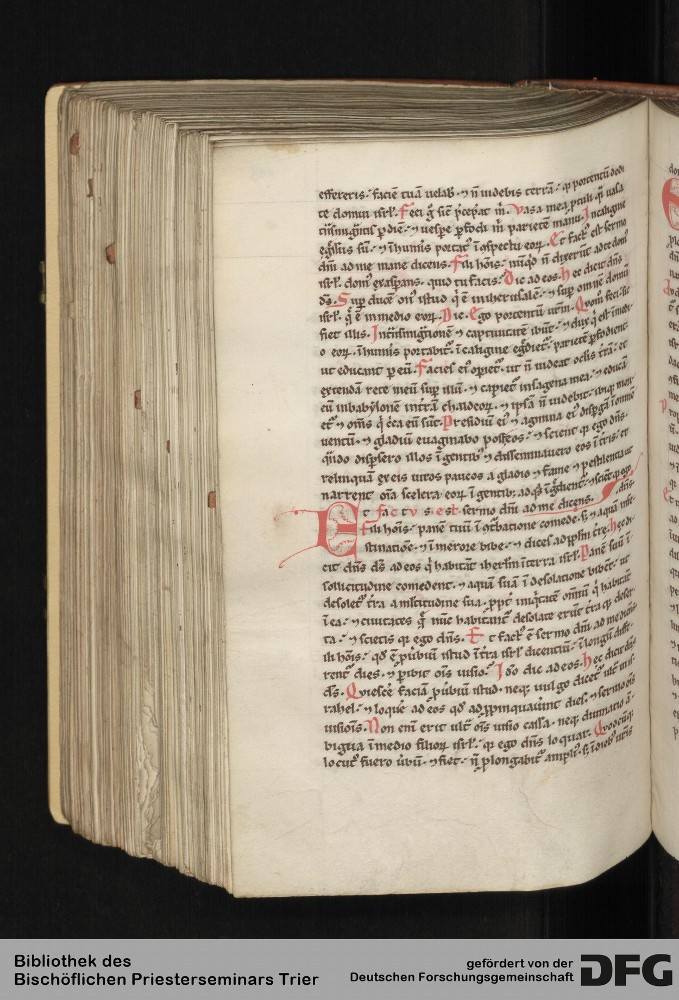 efferetis. faciē tuā uelab. ⁊ ñ uidebis terrā. qꝫ portentū dedi
te domui isrl̓. Feci ġ sic̄ p̄cepat m̄. Vasa mea ꝓtuli q̄si uasa
egssus sū. ⁊ ī humis portat᷒ ī ɔspectu eoꝝ. Et fact᷒ est sermo
dn̄i ad me mane dicens. Fili hōis. nūqd̓ ñ dixerūt ad te dom᷒
isrl̓. dom᷒ exaspans. quid tu facis. Dic ad eos. Hec dicit dn̄s
ds̄. Sup ducē on᷒ istud q̓ ē in iherusalē. ⁊ sup omnē domū
isrl̓. q̄ ē in medio eoꝝ. Dic. Ego portentū ur̄m. Quom̄ feci. sic
fiet illis. In t̄nsmig̓tionē ⁊ captiuitatē ibūt. ⁊ dux q̓ est in medi
o eoꝝ. ī humis portabit᷒. ī caligine egdiet᷒. parietē ꝑfodient
ut educant ꝑ eū. Facies ei᷒ opiet᷒. ut ñ uideat oclis t̄rā. et
extendā rete meū sup illū. ⁊ capiet᷒ in sagena mea. ⁊ educā
eū in babylonē in t̄rā chaldeoꝝ. ⁊ ipsā ñ uidebit. ibiqꝫ mori
et᷒. ⁊ om̄s q̓ c̄ca eū sūt. Presidiū ei᷒ ⁊ agmina ei᷒ dispgā ī omnē
uentū. ⁊ gladiū euaginabo post eos. ⁊ scient qꝫ ego dn̄s.
qn̄do dispsero illos ī gentib᷒ ⁊ disseminauero eos ī t̄ris. et
relinquā ex eis uiros paucos a gladio ⁊ fame ⁊ pestilentia ut
narrent om̄a scelera eoꝝ ī gentib᷒ ad qs̄ īg̓dient᷒. ⁊ scient qꝫ ego
Et factus est sermo dn̄i ad me dicens. dn̄s.
Fili hōis. panē tuū ī ɔturbatione comede. s᷒ ⁊ aquā tuā ī fe
stinatiōe. ⁊ ī merore bibe. ⁊ dices ad pplm̄ t̄re. Hec di
cit dn̄s ds̄ ad eos q̓ habitāt ī iherlm̄ in terra isrl̓. Panē suū ī
sollicitudine comedent. ⁊ aquā suā ī desolatione bibēt. ut
desolet᷒ t̄ra a multitudine sua. ꝓpt̓ iniq̓tatē omniū q̓ habitāt
ī ea. ⁊ ciuitates q̄ nūc habitant᷒ desolate erūt t̄ra qꝫ deser
ta. ⁊ scietis qꝫ ego dn̄s. Et fact᷒ ē sermo dn̄i ad me dicens.
ili hōis. qd̓ ē ꝓuerbiū istud ī t̄ra isrl̓ dicentiū. ī longū diffe
rent᷒ dies. ⁊ pibit om̄s uisio. Ideo dic ad eos. Hec dicit dn̄s
ds̄. Quiescē faciā ꝓuerbiū istud. neqꝫ uulgo dicet᷒ ult̓ in is
rahel. ⁊ loq̄re ad eos qd̓ appinquauint dies. ⁊ sermo om̄s
uisiōis. Non enī erit ult̓ om̄s uisio cassa. neqꝫ diuinatio a
bigua ī medio filioꝝ isrl̓. qꝫ ego dn̄s loquar. Quodcūqꝫ
locut᷒ fuero ūbū. ⁊ fiet. ñ ꝓlongabit᷒ ampli᷒. s᷒ ī dieb᷒ ur̄is
Bibliothek des
Bischöflichen Priesterseminars Trier
gefördert von der
Deutschen Forschungsgemeinschaft
DFG